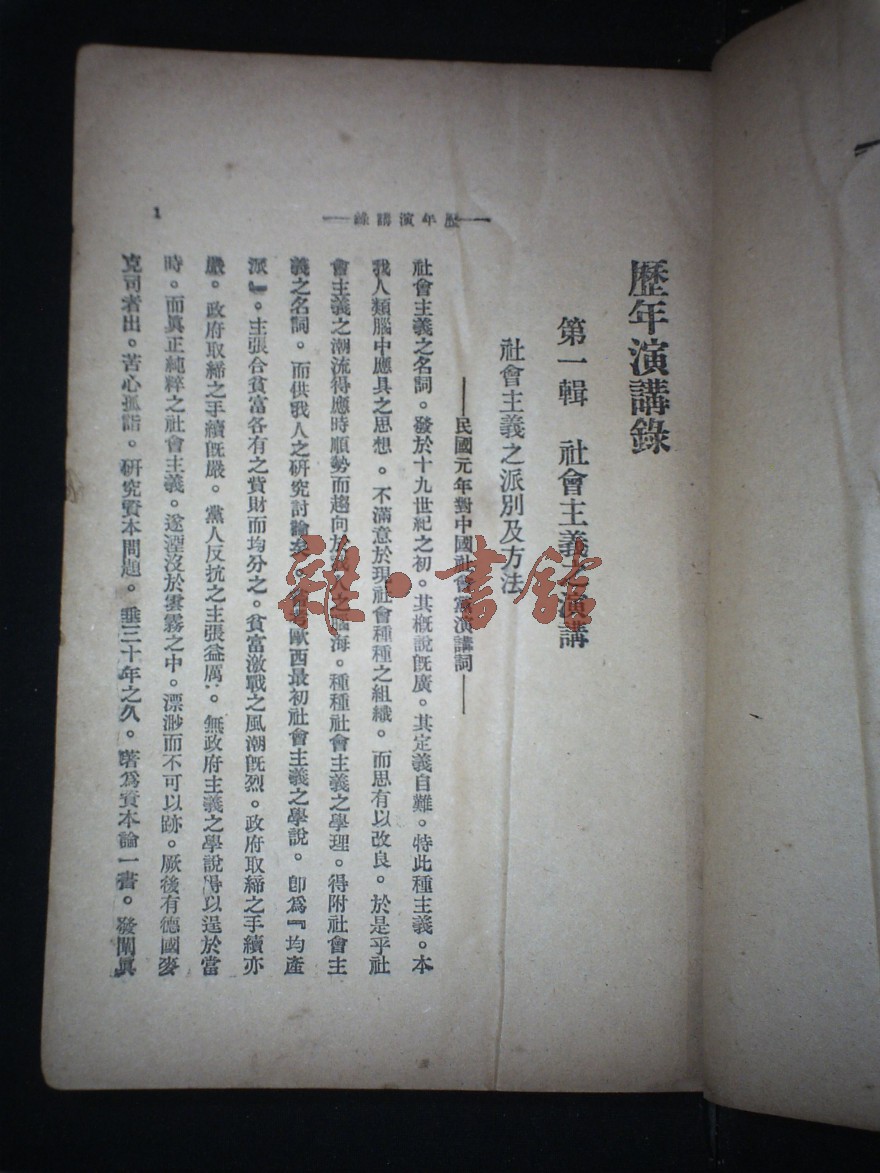 歷年演講錄
第一輯　社會主義之演講
社會主義之派別及方法
——民國元年對中國社會黨演講詞——
社會主義之名詞。發於十九世紀之初。其概說旣廣。其定義自難。特此種主義。本
我人類腦中應具之思想。不滿意於現社會種種之組織。而思有以改良。於是乎社
會主義之潮流得應時順勢而趨向於我人之腦海。種種社會主義之學理。得附社會主
義之名詞。而供我人之研究討論矣。嘗考歐西最初社會主義之學說。卽爲『均產
派』。主張合貧富各有之貲財而均分之。貧富激戰之風潮旣烈。政府取締之手續亦
嚴。政府取締之手續旣嚴。黨人反抗之主張益厲。無政府主義之學說得以逞於當
時。而眞正純粹之社會主義。遂湮沒於雲霧之中。漂渺而不可以跡。厥後有德國麥
克司者出。苦心孤詣。研究資本問題。垂三十年之久。著爲資本論一書。發闡眞
——歷年演講錄——
1
雜·書館